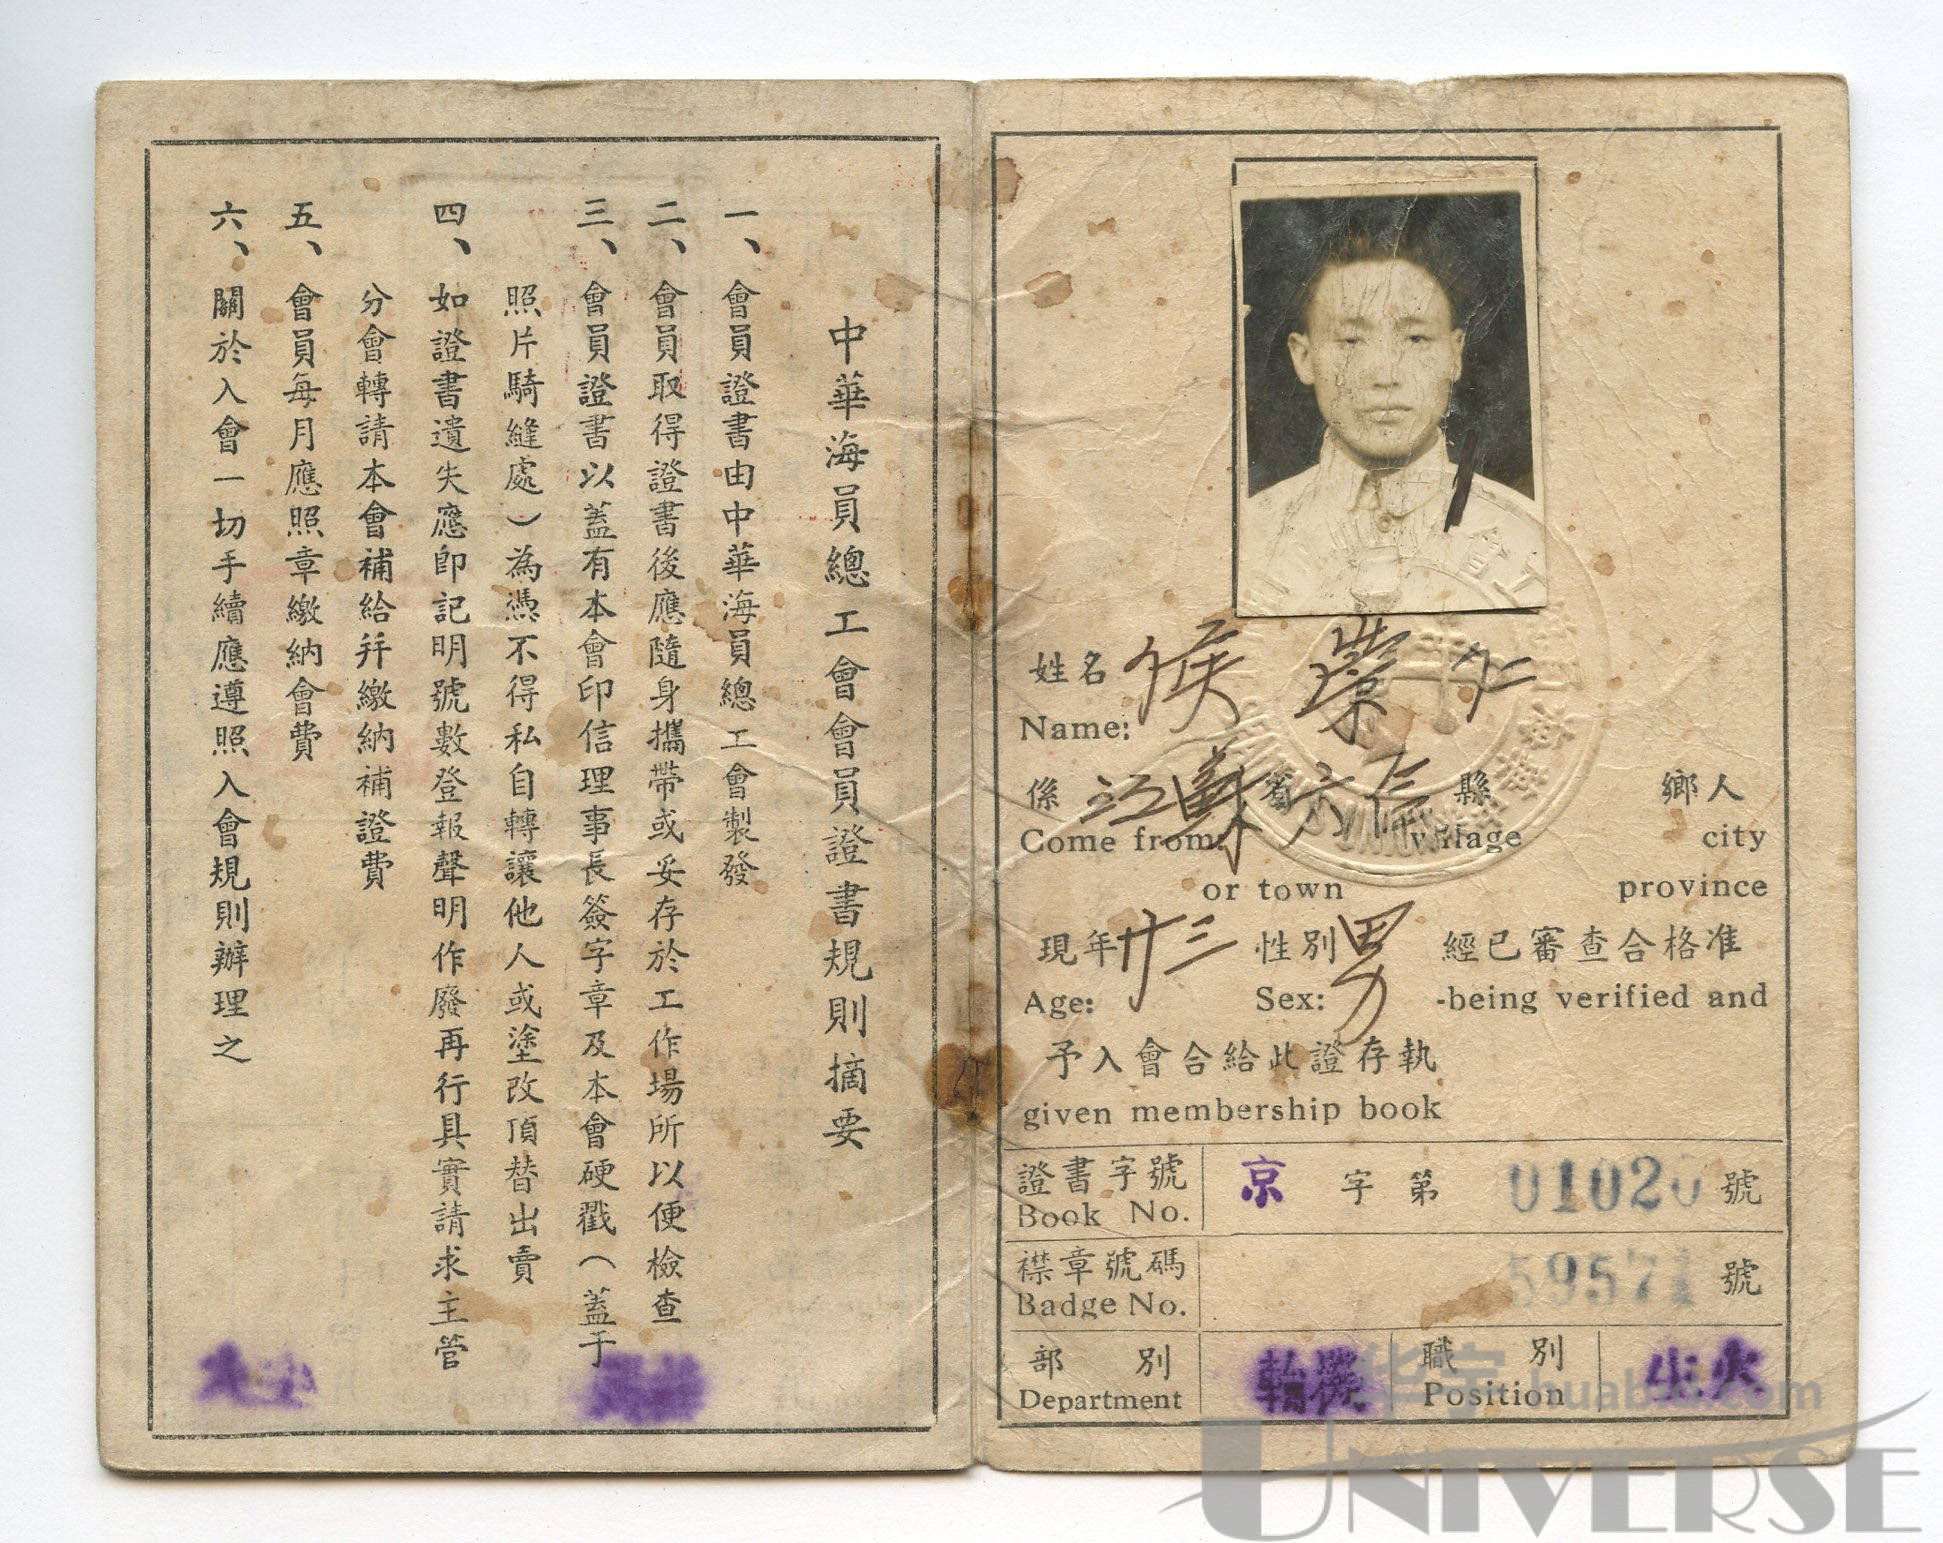 中華海員總工會會員證書規則摘要
一、會員證書由中華海員總工會製發
二、會員取得證書後應隨身攜帶或妥存於工作場所以便檢查
三、會員證書以蓋有本會印信理事長簽字章及本會硬戳（蓋于
照片騎縫處）為憑不得私自轉讓他人或塗改頂替出賣
四、如證書遺失應即記明號數登報聲明作廢再行具實請求主管
分會轉請本會補給并繳納補證費
五、會員每月應照章繳納會費
六、關於入會一切手續應遵照入會規則辦理之
姓名 侯 崇 仁
Name:
係 江蘇 省 六合 縣 鄉人
Come from: village city
or town province
現年 廿三 性別 男 經已審查合格准
Age: Sex: -being verified and
予入會合給此證存執
given membership book
證書字號 京 字 第 01020 號
Book No.
襟章號碼 59571 號
Badge No.
部 別 職 別 火生
Department Position
华宇 huabid.com
UNIVERSE